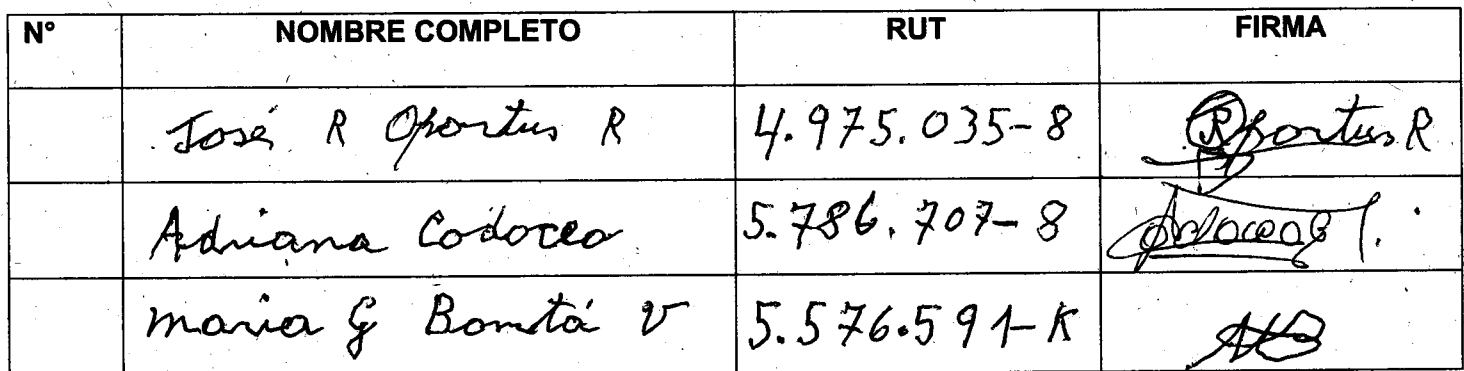 N° NOMBRE COMPLETO RUT FIRMA
José R Oportus R 4.975.035-8 Oportus R
Adriana Codoceo 5.786.707-8
Maria G V 5.576.591-K